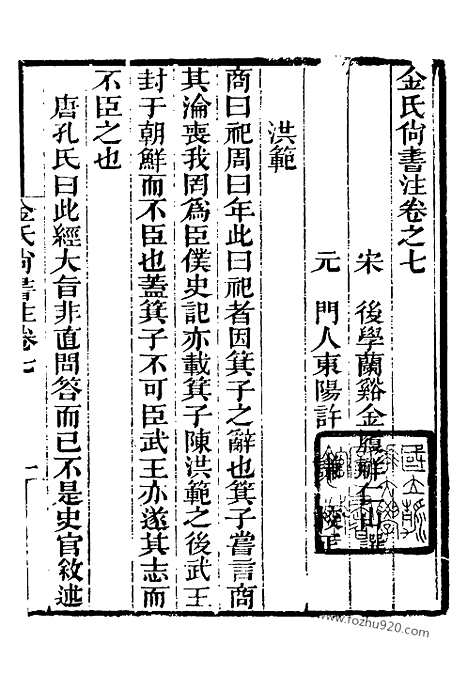 金氏尙書注卷之七
宋 後學蘭谿金履祥仁山譔
元 門人東陽許謙 校正
洪範
商曰祀周曰年此曰祀者因箕子之辭也箕子嘗言商
其淪喪我罔爲臣僕史記亦載箕子陳洪範之後武王
封于朝鮮而不臣也蓋箕子不可臣武王亦遂其志而
不臣之也
唐孔氏曰此經大旨非直問答而已不是史官敘述
金氏尙書注卷七
一
www.fozhu920.com